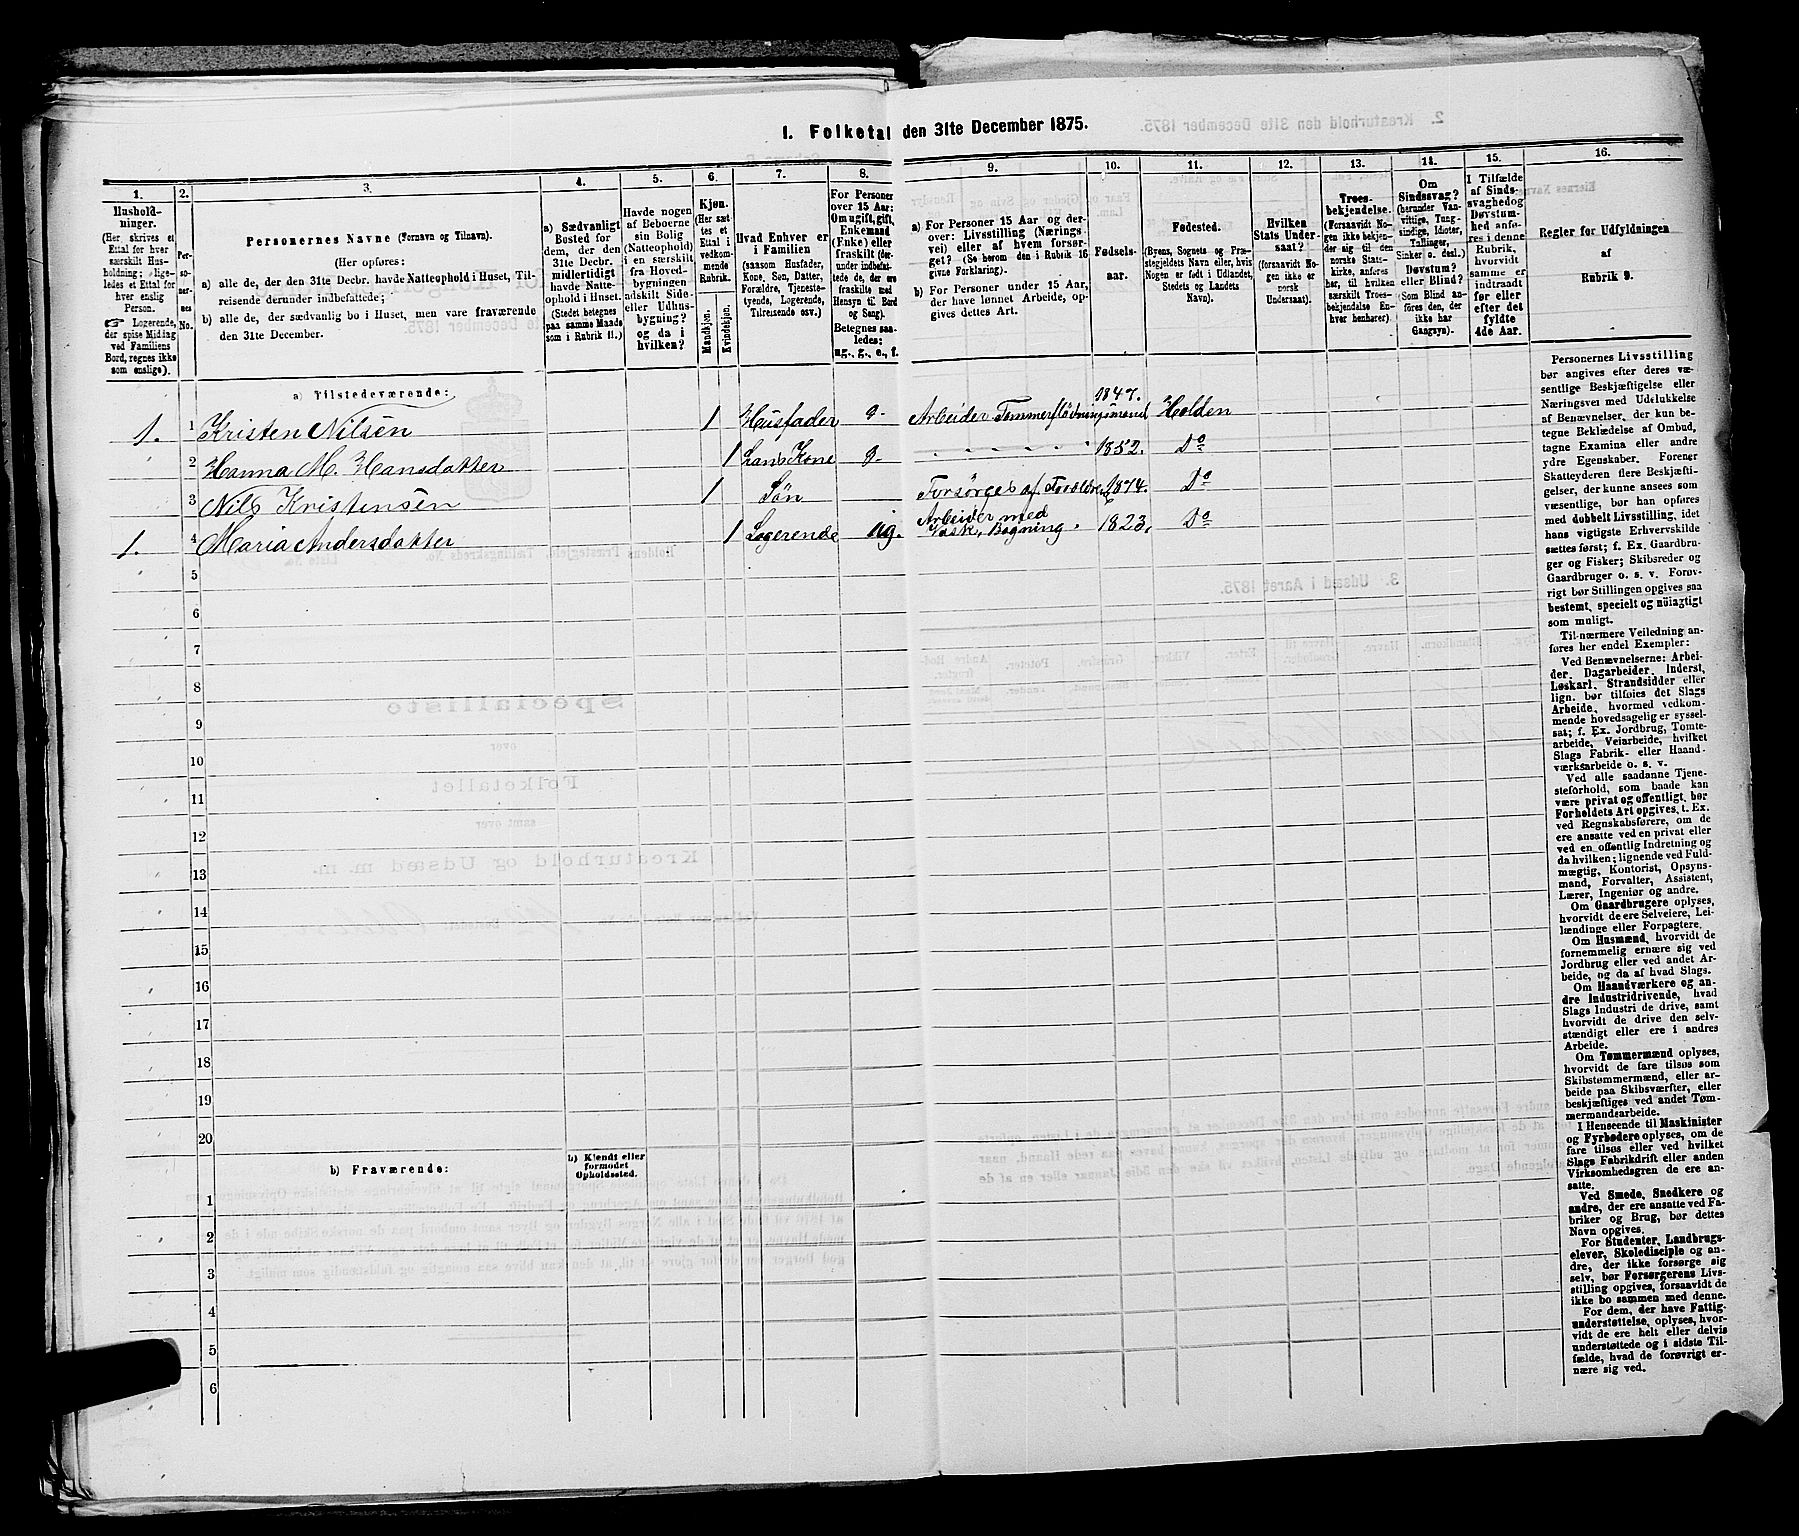 I. Folketal den 31te December 1875.
1. 2. 3. 4. 5. 6. 7. 8. 9. 10. 11. 12. 13. 14. 15. 16.
Hushold-
ninger.
(Her skrives et
Ettal for hver
særskilt Hus-
holdning; lige-
ledes et Ettal for
hver enslig
Person.
☞ Logerende,
der spise Middag
ved Familiens
Bord, regnes ikke
som enslige).
Per-
so-
ner-
nes
No.
Personernes Navne (Fornavn og Tilnavn).
(Her opføres:
a) alle de, der den 31te Decbr. havde Natteophold i Huset, Til-
reisende derunder indbefattede;
b) alle de, der sædvanlig bo i Huset, men vare fraværende
den 31te December.
a) Sædvanligt
Bosted for
dem, der den
31te Decbr.
midlertidigt
havde Natte-
ophold i Huset.
(Stedet betegnes
paa samme Maade
som i Rubrik 11.)
Havde nogen
af Beboerne
sin Bolig
(Natteophold)
i en særskilt
fra Hoved-
bygningen
adskilt Side-
eller Udhus-
bygning?
og da i
hvilken?
Kjøn.
(Her sæt-
tes et
Ettal i
vedkom-
mende
Rubrik.
Mandkjøn.
Kvindekjøn.
Hvad Enhver er
i Familien
(saasom Husfader,
Kone, Søn, Datter,
Forældre, Tjeneste-
tyende, Logerende,
Tilreisende osv.)
For Personer
over 15 Aar:
Om ugift, gift,
Enkemand
(Enke) eller
fraskilt (der-
under indbefat-
tede de, der ere
fraskilte med
Hensyn til Bord
og Seng).
Betegnes saa-
ledes:
ug., g., e., f.
a) For Personer 15 Aar og der-
over: Livsstilling (Nærings-
vei) eller af hvem forsør-
get? (Se herom den i Rubrik 16
givne Forklaring).
b) For Personer under 15 Aar,
der have lønnet Arbeide, op-
gives dettes Art.
Fødsels-
aar.
Fødested.
(Byens, Sognets og Præ-
stegjeldets Navn eller, hvis
Nogen er født i Udlandet,
Stedets og Landets
Navn).
Hvilken
Stats Under-
saat?
(forsaavidt No-
gen ikke er
norsk
Undersaat).
Troes-
bekjendelse.
(Forsaavidt No-
gen ikke bekjen-
der sig til den
norske Stats-
kirke, anføres
her, til hvilken
særskilt Troes-
bekjendelse En-
hver henhører).
Om
Sindssvag?
(herunder Van-
vittige, Tung-
sindige, Idioter,
Tullinger,
Sinker o. desl.)
Døvstum?
eller Blind?
(Som Blind an-
føres den, der
ikke har
Gangsyn).
I Tilfælde
af Sinds-
svaghed og
Døvstum-
hed anfø-
res i denne
Rubrik,
hvorvidt
samme er
indtraadt
før eller
efter det
fyldte
4de Aar.
Regler for Udfyldningen
af
Rubrik 9.
a) Tilstedeværende:
1. 1 Kristen Nilsen 1 Husfader g. Arbeider Tømmerflødningsmand 1847. Holden
2 Hanna M. Hansdatter 1 hans Kone g. 1852. Do
3 Nils Kristensen 1 Søn Forsørges af Forældre 1874. Do
1. 4 Maria Andersdatter 1 Logerende ug. Arbeider med Vask, Bagning 1823. Do
5
6
7
8
9
10
11
12
13
14
15
16
17
18
19
20
b) Fraværende:
b) Kjendt eller
formodet
Opholdssted.
1
2
3
4
5
6
Personernes Livsstilling
bør angives efter deres væ-
sentlige Beskjæftigelse eller
Næringsvei med Udelukkelse
af Benævnelser, der kun be-
tegne Beklædelse af Ombud,
tagne Examina eller andre
ydre Egenskaber. Forener
Skatteyderen flere Beskjæfti-
gelser, der kunne ansees som
væsentlige, bør han opføres
med dobbelt Livsstilling, idet
hans vigtigste Erhvervskilde
sættes først; f. Ex. Gaardbru-
ger og Fisker; Skibsreder og
Gaardbruger o. s. v. Forøv-
rigt bør Stillingen opgives saa
bestemt, specielt og nøiagtigt
som muligt.
Til nærmere Veiledning an-
føres her endel Exempler:
Ved Benævnelserne: Arbei-
der, Dagarbeider, Inderst,
Løskarl, Strandsidder eller
lign. bør tilføies det Slags
Arbeide, hvormed vedkom-
mende hovedsagelig er syssel-
sat; f. Ex. Jordbrug, Tomte-
arbeide, Veiarbeide, hvilket
Slags Fabrik- eller Haand-
værksarbeide o. s. v.
Ved alle saadanne Tjene-
steforhold, som baade kan
være privat og offentligt, bør
Forholdets Art opgives, t. Ex.
ved Regnskabsførere, om de
ere ansatte ved en privat eller
ved en offentlig Indretning og
da hvilken; lignende ved Fuld-
mægtig, Kontorist, Opsyns-
mand, Forvalter, Assistent,
Lærer, Ingeniør og andre.
Om Gaardbrugere oplyses,
hvorvidt de ere Selveiere, Lei-
lændinge eller Forpagtere.
Om Husmænd, hvorvidt de
fornemmelig ernære sig ved
Jordbrug eller ved andet Ar-
beide, og da af hvad Slags.
Om Haandværkere og an-
dre Industridrivende, hvad
Slags Industri de drive, samt
hvorvidt de drive den selv-
stændigt eller ere i andres
Arbeide.
Om Tømmermænd oplyses,
hvorvidt de fare tilsøs som
Skibstømmermænd, eller ar-
beide paa Skibsværfter, eller
beskjæftiges ved andet Tøm-
mermandsarbeide.
I Henseende til Maskinister
og Fyrbødere oplyses, om de
fare tilsøs eller ved hvilket
Slags Fabrikdrift eller anden
Virksomhedsgren de ere an-
satte.
Ved Smede, Snedkere og
andre, der ere ansatte ved Fa-
briker og Brug, bør dettes
Navn opgives.
For Studenter, Landbrugs-
elever, Skoledisciple og an-
dre, der ikke forsørge sig
selv, bør Forsørgerens Livs-
stilling opgives, forsaavidt de
ikke bo sammen med denne.
For dem, der have Fattig-
understøttelse, oplyses, hvor-
vidt de ere helt eller delvis
understøttede og i sidste Til-
fælde, hvad de forøvrigt er-
nære sig ved.